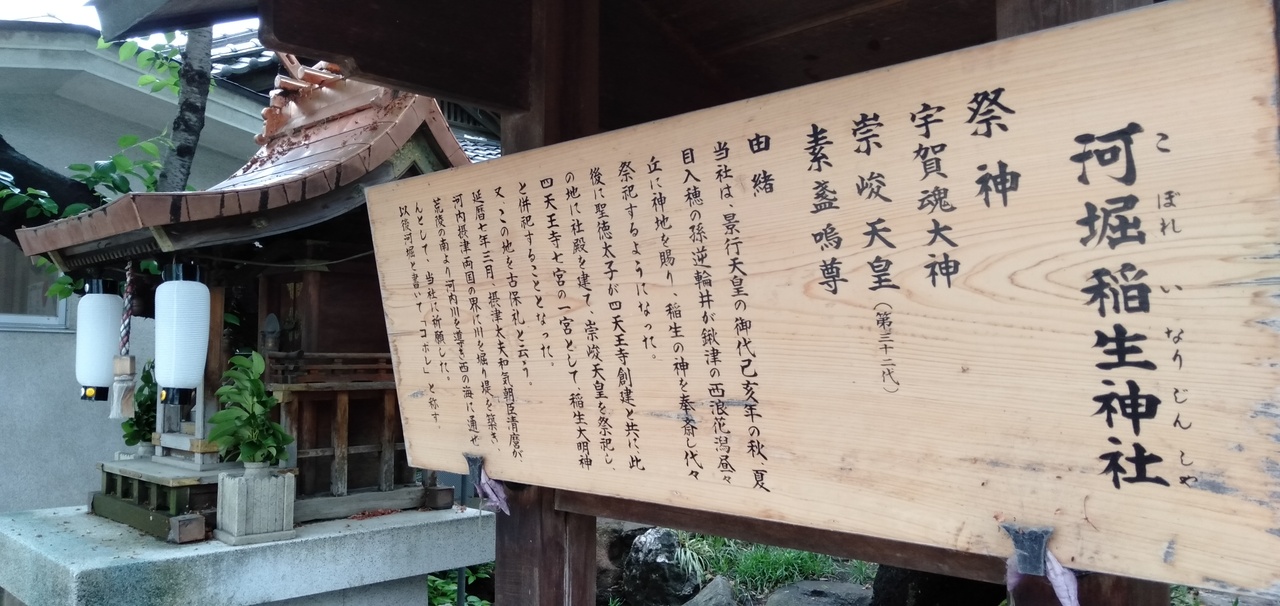 河堀稲生神社
こぼれいなりじんしゃ
祭神
宇賀魂大神
崇峻天皇(第三十二代)
素盞嗚尊
由緒
当社は、景行天皇の御代己亥年の秋、夏
目入穂の孫逆輪井が鍬津の西浪花潟昼々
丘に神地を賜り、稲生の神を奉斎し代々
祭祀するようになった。
後に聖徳太子が四天王寺創建と共に、此
の地に社殿を建て、崇峻天皇を祭祀し
四天王寺七宮の一宮として、稲生大明神
と併祀することとなった。
又、この地を古保礼と云う。
延暦七年三月、摂津太夫和気朝臣清麿が、
河内摂津両国の界に川を堀り堤を築き、
荒陵の南より河内川を導き西の海に通ぜ
んとして、当社に祈願した。
以後河堀と書いて、「コボレ」と称す。